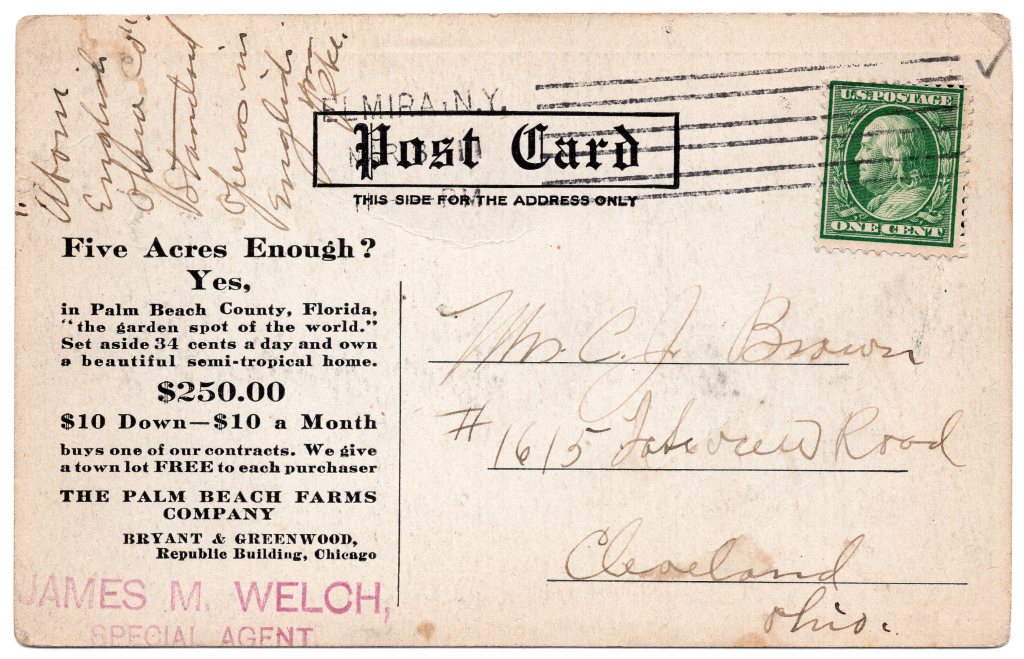 Aborn
English
Opera Co".
Standard
Operas in
English
ELMIRA, N.Y.
Post Card
PM
THIS SIDE FOR THE ADDRESS ONLY
U.S. POSTAGE
ONE CENT
Five Acres Enough?
Yes,
in Palm Beach County, Florida,
"the garden spot of the world."
Set aside 34 cents a day and own
a beautiful semi-tropical home.
$250.00
$10 Down—$10 a Month
buys one of our contracts. We give
a town lot FREE to each purchaser
THE PALM BEACH FARMS
COMPANY
BRYANT & GREENWOOD,
Republic Building, Chicago
JAMES M. WELCH,
SPECIAL AGENT.
Mr. C. J. Brown
# 1615 Road
Cleveland
Ohio.